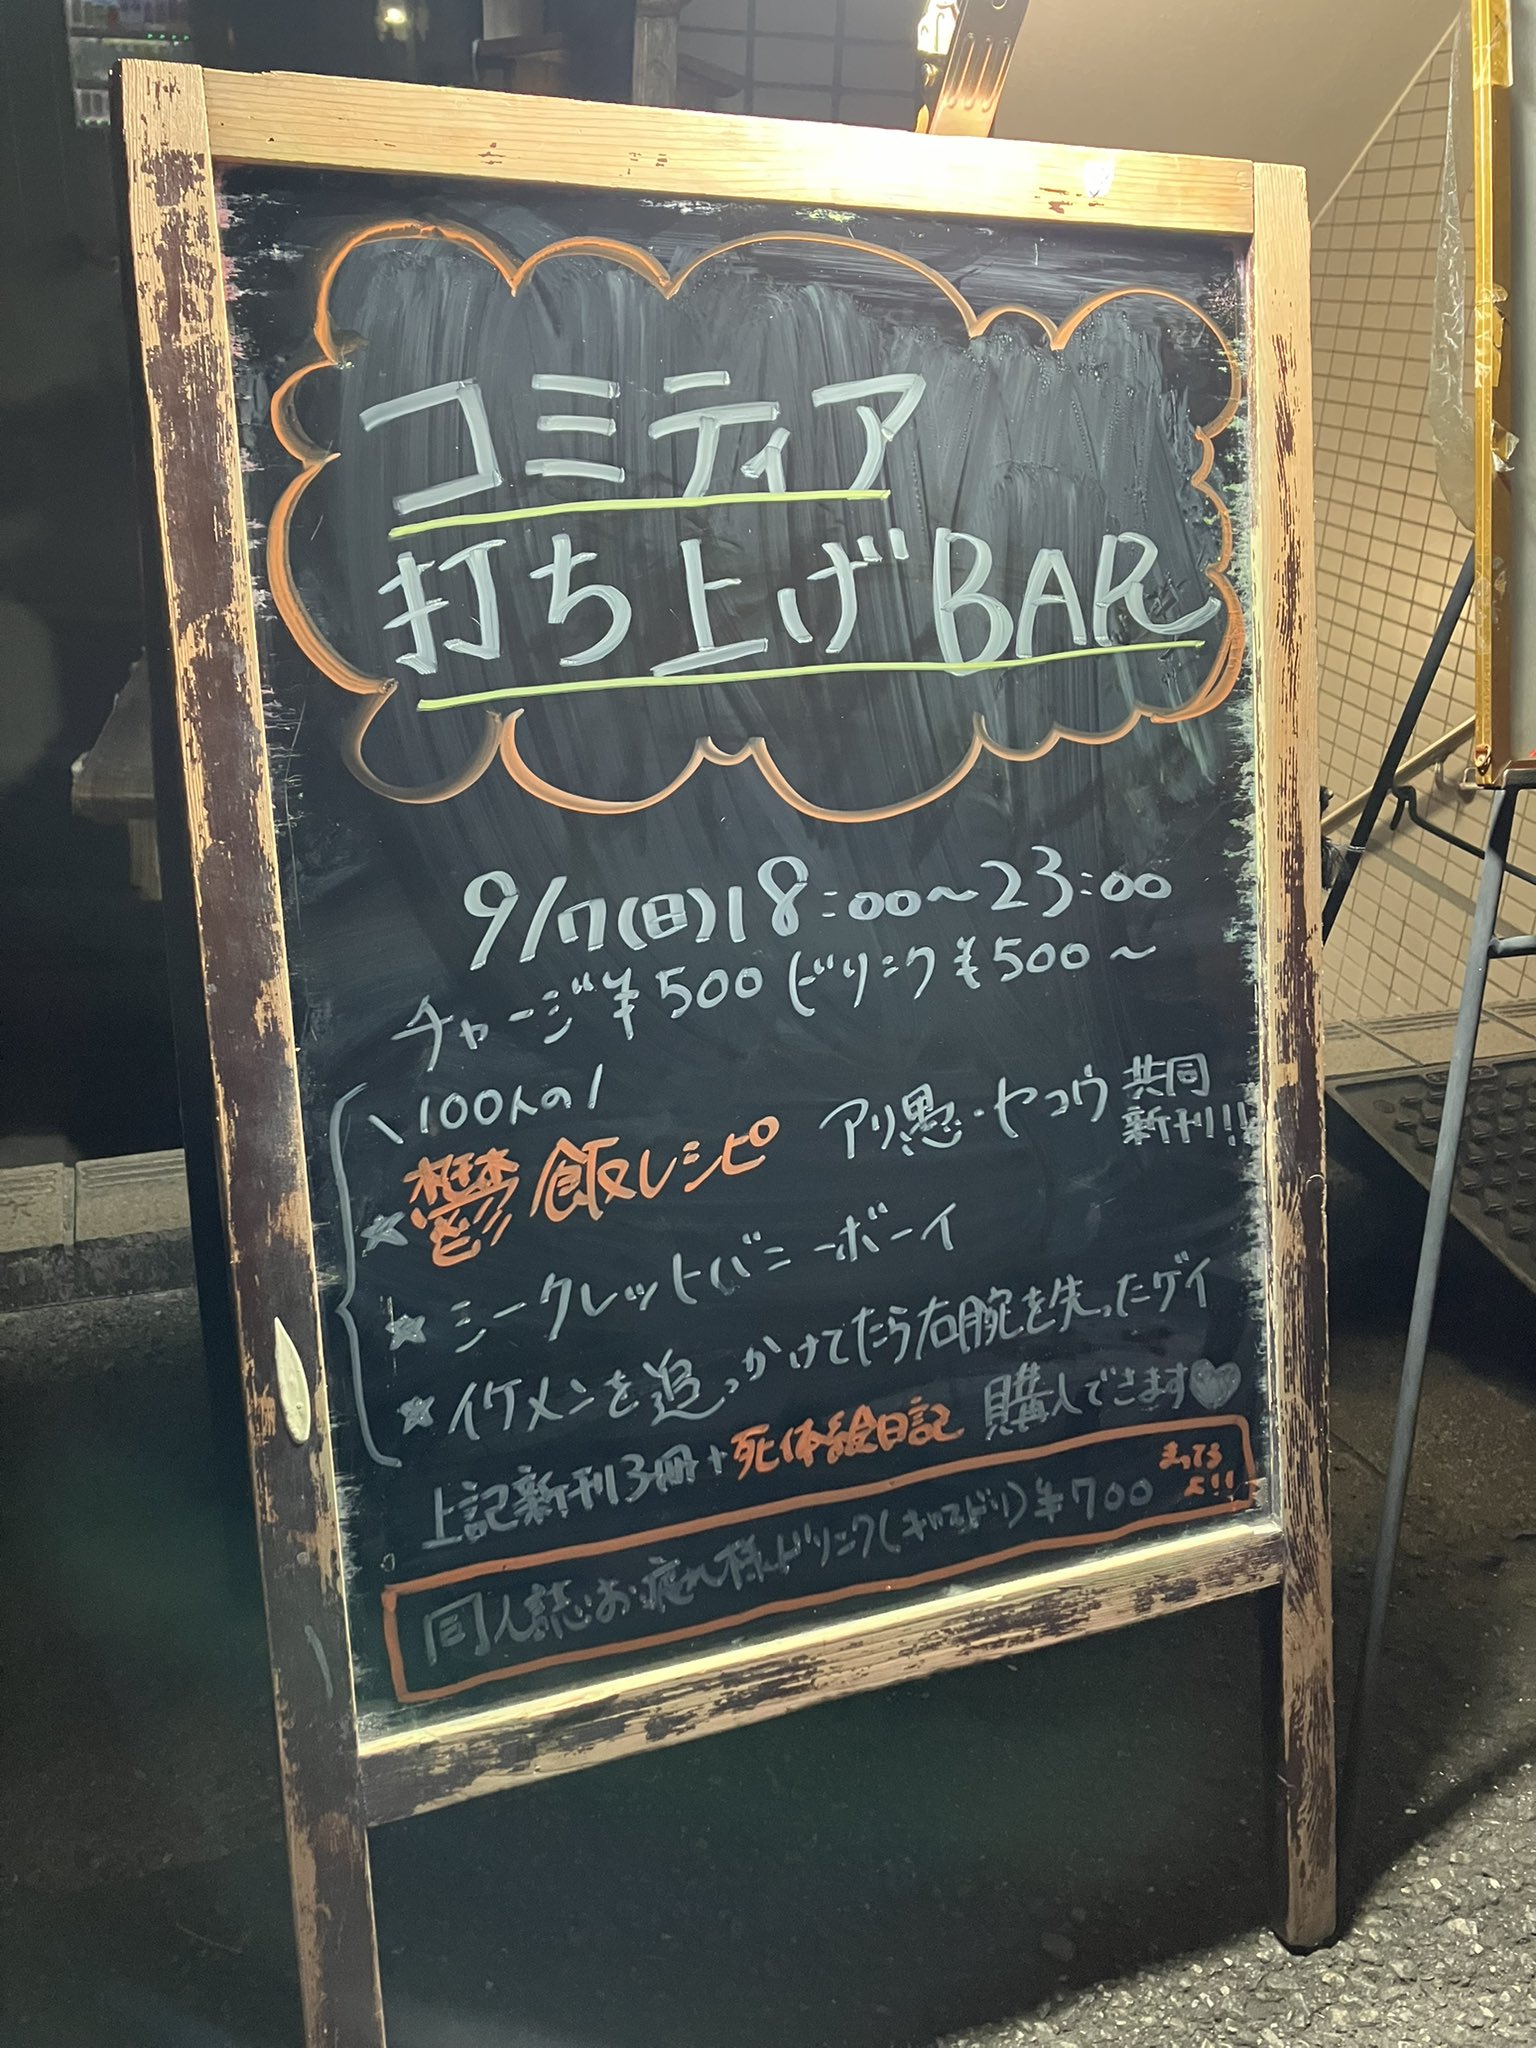 コミティア
打ち上げBAR
9/7(日)18:00~23:00
チャージ¥500 ドリンク¥500~
\100人の/
★鬱飯レシピ アリ愚・セコウ 共同
新刊!!
★シークレットバニーボーイ
★イケメンを追っかけてたら右腕を失ったゲイ
上記新刊3冊+死体絵日記 購入できます♥
同人誌お疲れ様ドリンク( )¥700 まってる
よ!!